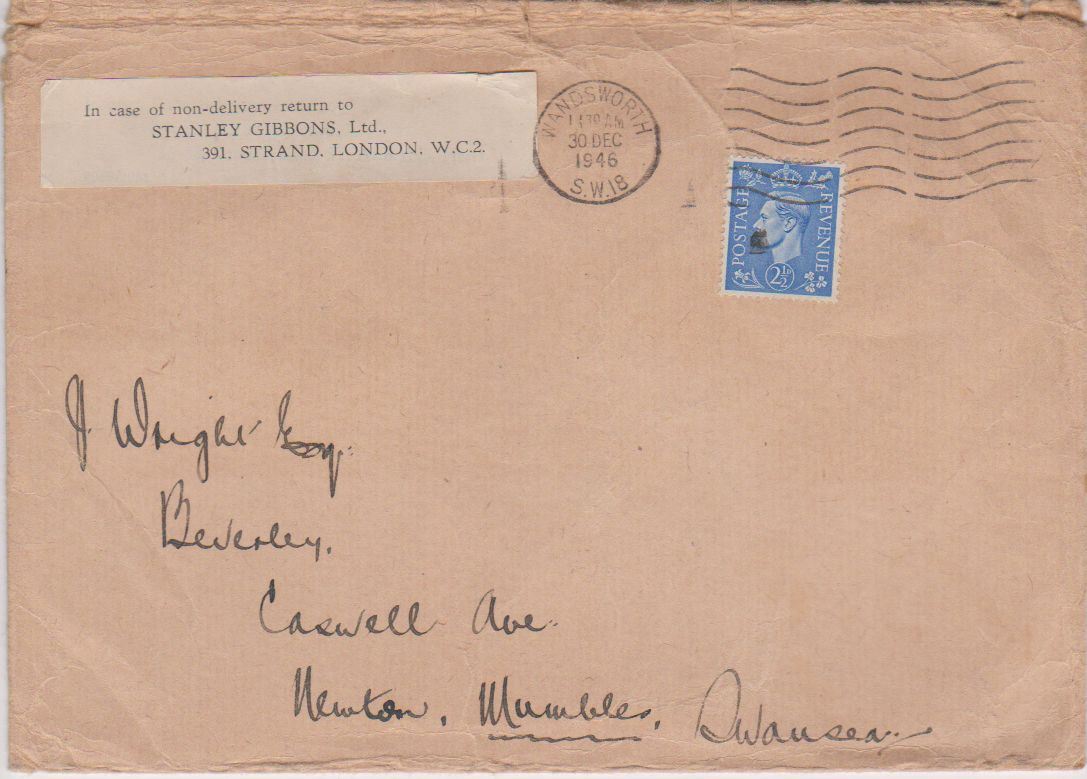 In case of non-delivery return to
STANLEY GIBBONS, Ltd.,
391, STRAND, LONDON, W.C.2.
WANDSWORTH
30 DEC
1946
S.W.18
POSTAGE REVENUE
2½D
J. Wright Esq.
Beverley,
Caswell Ave.
Newton, Mumbles, Swansea.